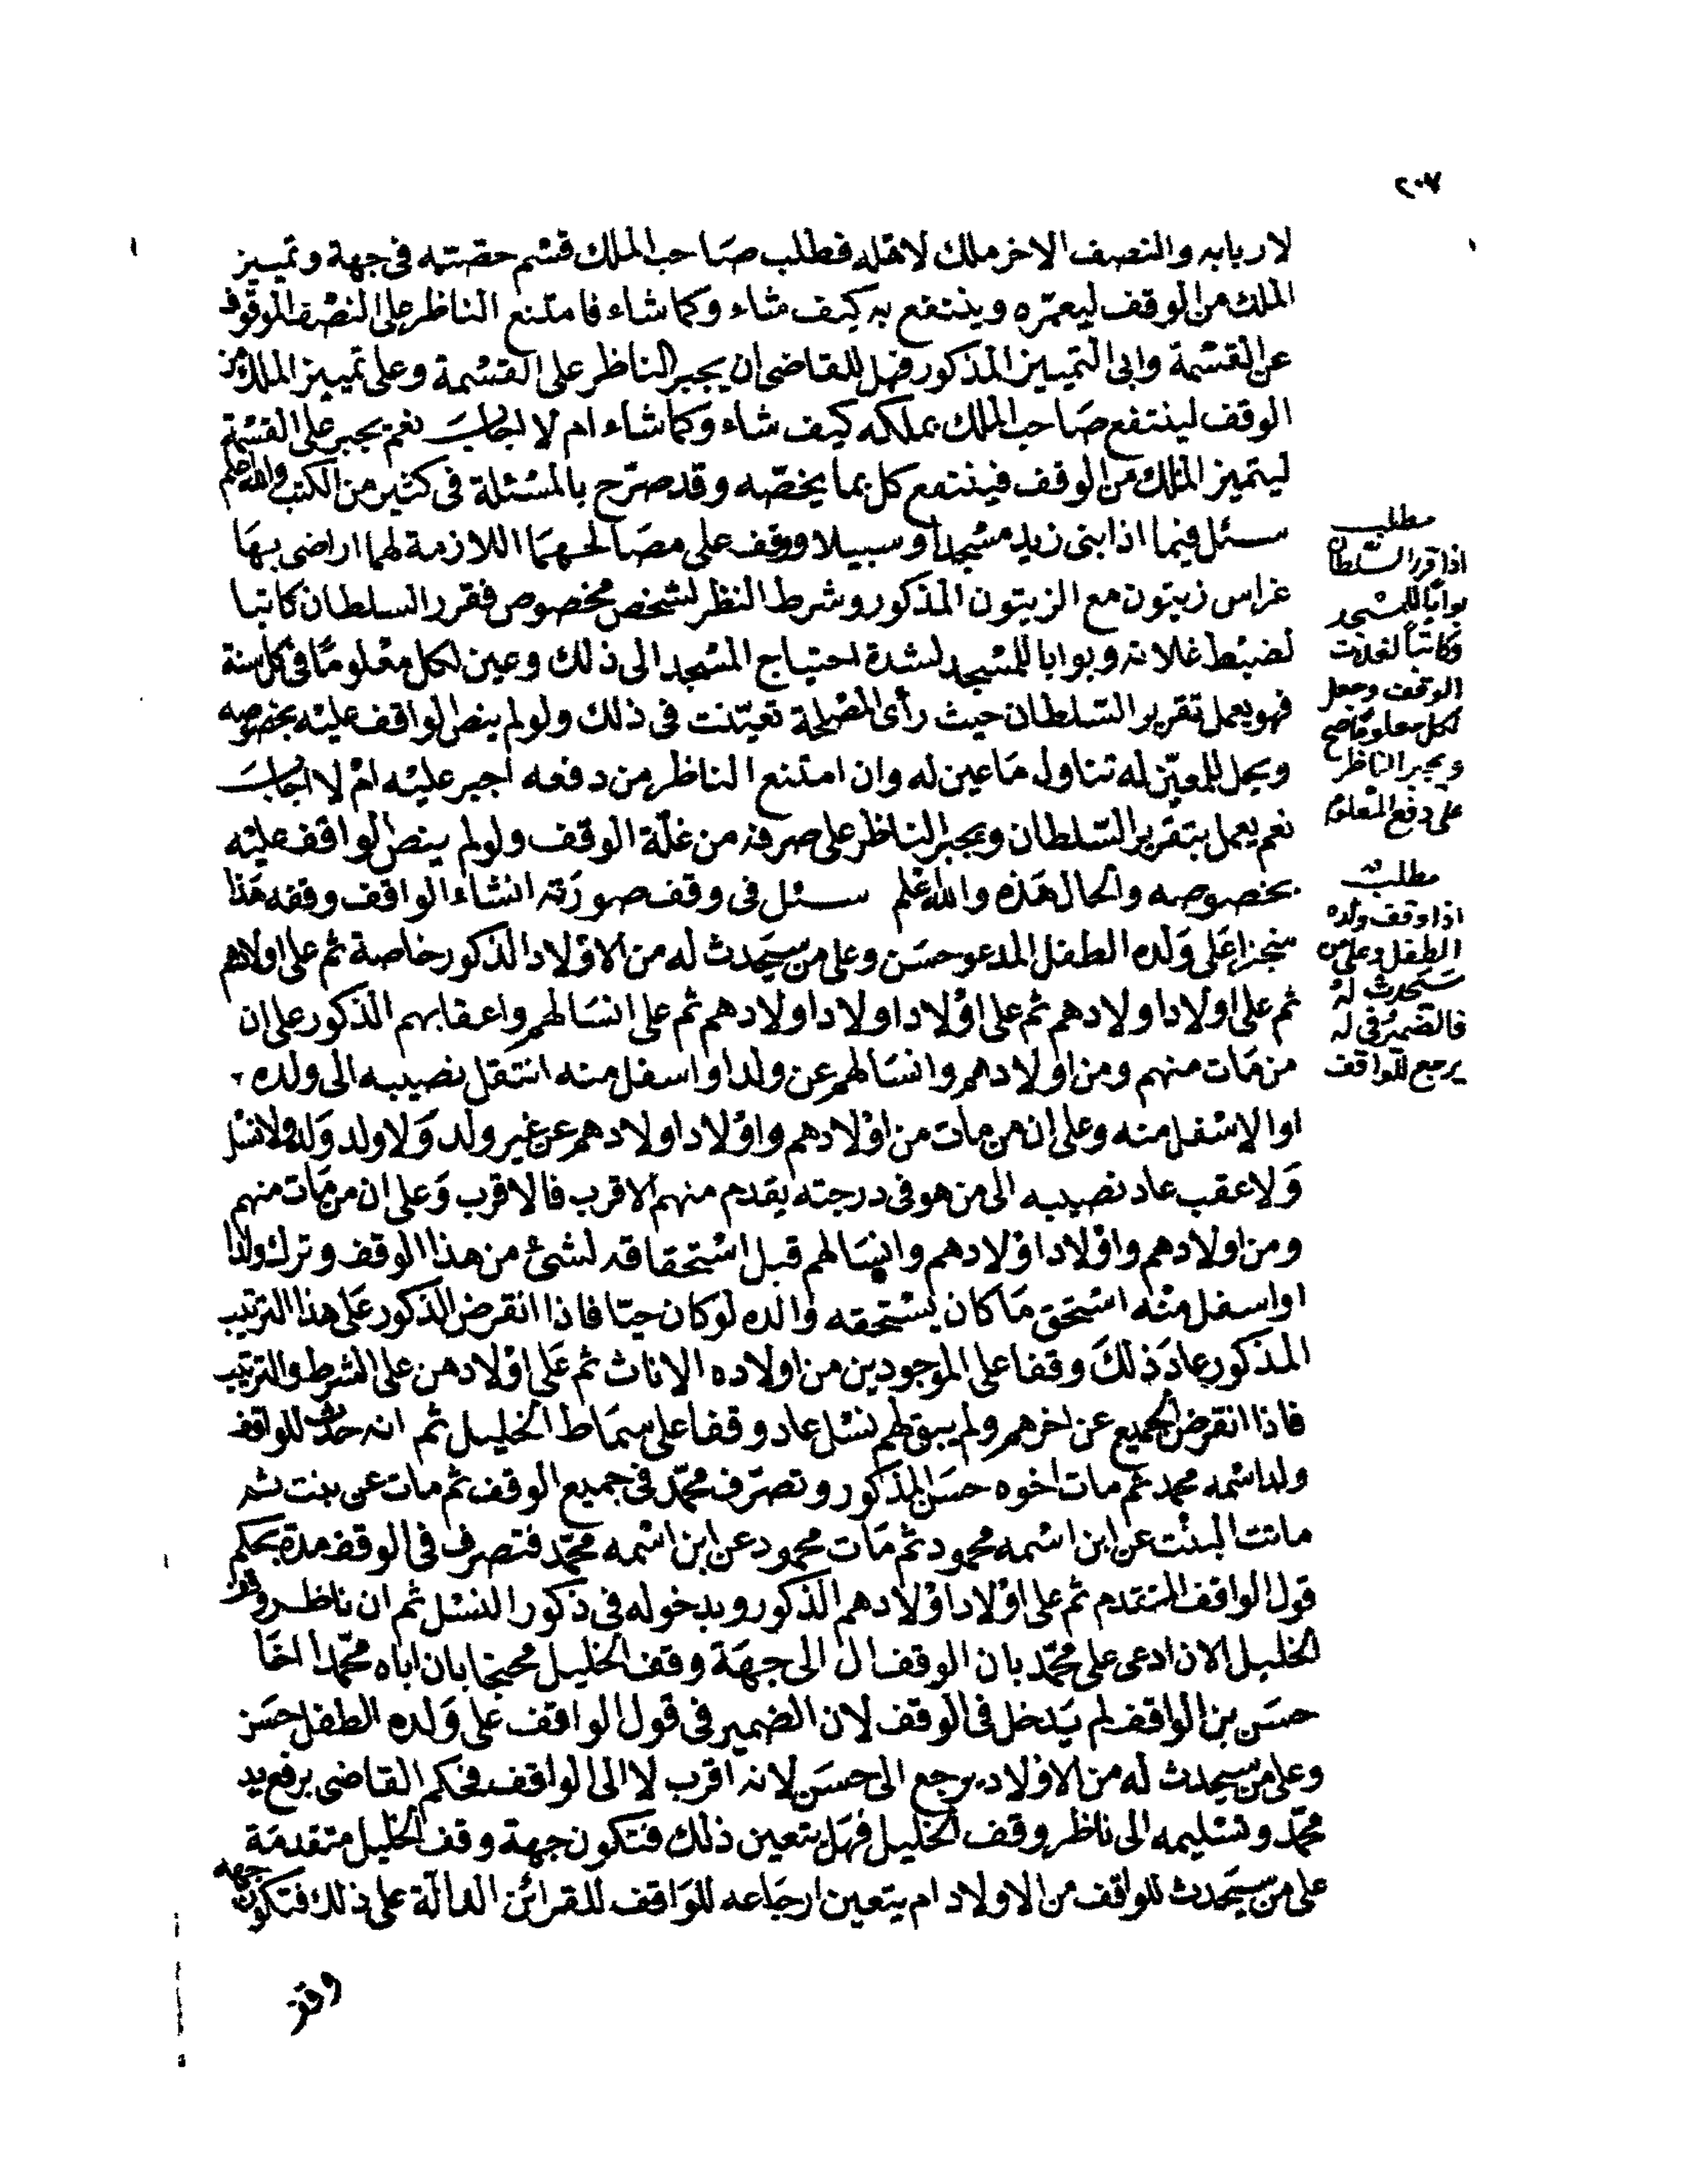 ٢٠٧
لاربابه والنصف الاخر ملك لاهله فطلب صاحب الملك قسم حصته فى جهة وتمييز
الملك من الوقف ليعمره وينتفع به كيف شاء وكما شاء فامتنع الناظر على النصف الموقوف
عن القسمة وابى التمييز المذكور فهل للقاضى ان يجبر الناظر على القسمة وعلى تمييز الملك من
الوقف لينتفع صاحب الملك بملكه كيف شاء وكما شاء ام لا اجاب نعم يجبر على القسمة
ليتميز الملك من الوقف فينتفع كل بما يخصه وقد صرح بالمسئلة فى كثير من الكتب والله اعلم
سئل فيما اذا بنى زيد مسجدا وسبيلا ووقف على مصالحهما اللازمة لهما اراضى بها
غراس زيتون مع الزيتون المذكور وشرط النظر لشخص مخصوص فقرر السلطان كاتبا
لضبط غلاته وبوابا للمسجد لشدة احتياج المسجد الى ذلك وعين لكل معلوما فى كل سنة
فهو يعمل تقرير السلطان حيث رأى المصلحة تعينت فى ذلك ولو لم ينص الواقف عليه بخصوصه
ويحل للمعين له تناول ما عين له وان امتنع الناظر من دفعه اجبر عليه ام لا اجاب
نعم يعمل بتقرير السلطان ويجبر الناظر على صرفه من غلة الوقف ولو لم ينص الواقف عليه
بخصوصه والحال هذه والله اعلم سئل فى وقف صورته انشاء الواقف وقفه هذا
منجزا على ولده الطفل المدعو حسن وعلى من سيحدث له من الاولاد الذكور خاصة ثم على اولادهم
ثم على اولاد اولادهم ثم على اولاد اولاد اولادهم ثم على انسالهم واعقابهم الذكور على ان
من مات منهم ومن اولادهم وانسالهم عن ولد او اسفل منه انتقل نصيبه الى ولده
او الاسفل منه وعلى ان من مات من اولادهم واولاد اولادهم عن غير ولد ولا ولد ولد ولا نسل
ولا عقب عاد نصيبه الى من هو فى درجته يقدم منهم الاقرب فالاقرب وعلى ان من مات منهم
ومن اولادهم واولاد اولادهم وانسالهم قبل استحقاقه لشئ من هذا الوقف وترك ولدا
او اسفل منه استحق ما كان يستحقه والده لو كان حيا فاذا انقرض الذكور على هذا الترتيب
المذكور عاد ذلك وقفا على الموجودين من اولاده الاناث ثم على اولادهن على الشرط والترتيب
فاذا انقرض الجميع عن اخرهم ولم يبق لهم نسل عاد وقفا على سماط الخليل ثم انه حدث للواقف
ولد اسمه محمد ثم مات اخوه حسن المذكور وتصرف محمد فى جميع الوقف ثم مات عن بنت ثم
ماتت البنت عن ابن اسمه محمود ثم مات محمود عن ابن اسمه محمد فتصرف فى الوقف مدة بحكم
قول الواقف المتقدم ثم على اولاد اولادهم الذكور وبدخوله فى ذكور النسل ثم ان ناظر وقف
الخليل الان ادعى على محمد بان الوقف ال الى جهة وقف الخليل محتجا بان اباه محمدا اخا
حسن بن الواقف لم يدخل فى الوقف لان الضمير فى قول الواقف على ولده الطفل حسن
وعلى من سيحدث له من الاولاد يرجع الى حسن لانه اقرب لا الى الواقف فحكم القاضى برفع يد
محمد وتسليمه الى ناظر وقف الخليل فهل يتعين ذلك فتكون جهة وقف الخليل متقدمة
على من سيحدث للواقف من الاولاد ام يتعين ارجاعه للواقف للقرائن الدالة على ذلك فتكون جهة
وقف
مطلب
اذا قرر السلطان
بوابا للمسجد
وكاتبا لغلات
الوقف وجعل
لكل معلوما صح
ويجبر الناظر
على دفع المعلوم
مطلب
اذا وقف ولده
الطفل وعلى من
سيحدث له
فالضمير فى له
يرجع للواقف